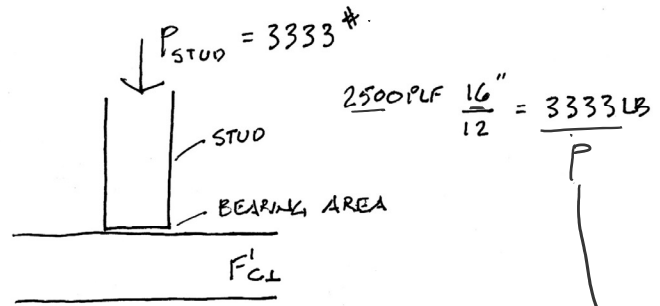 P STUD = 3333 #.
2500 PLF 16" / 12 = 3333 LB
P
STUD
BEARING AREA
F'c⊥